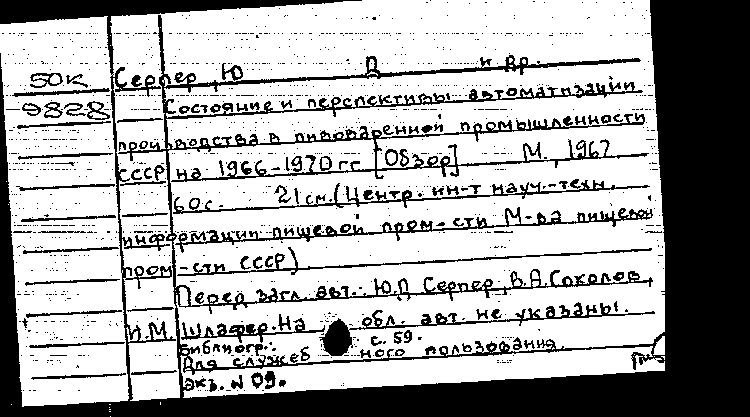 50к Серпер, Ю Д и др.
9828 Состояние и перспективы автоматизации
производства в пивоваренной промышленности
СССР на 1966-1970 гг [Обзор] М., 1967
60 с. 21 см. (Центр. ин-т науч.-техн.
информации пищевой пром-сти М-ва пищевой
пром-сти СССР)
Перед загл. авт.: Ю.Д Серпер, В.А.Соколов,
И.М. Шлафер. На обл. авт. не указаны.
Библиогр.: с. 59.
Для служебного пользования.
экз. N 09.